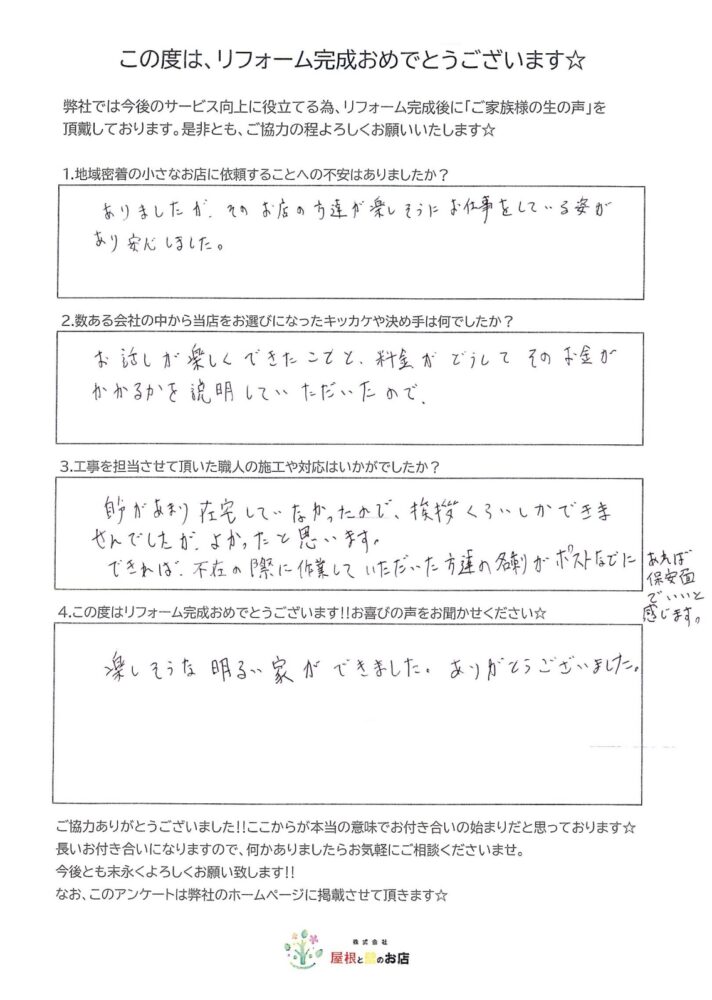 この度は、リフォーム完成おめでとうございます☆
弊社では今後のサービス向上に役立てる為、リフォーム完成後に「ご家族様の生の声」を
頂戴しております。是非とも、ご協力の程よろしくお願いいたします☆
1.地域密着の小さなお店に依頼することへの不安はありましたか？
ありましたが、そのお店の方達が楽しそうにお仕事をしている姿が
あり安心しました。
2.数ある会社の中から当店をお選びになったキッカケや決め手は何でしたか？
お話しが楽しくできたことと、料金がどうしてそのお金が
かかるかを説明していただいたので、
3.工事を担当させて頂いた職人の施工や対応はいかがでしたか？
自分があまり在宅していなかったので、挨拶くらいしかできま
せんでしたが、よかったと思います。
できれば、不在の際に作業していただいた方達の名刺がポストなどに
あれば
保安面
でいいと
感じます。
4.この度はリフォーム完成おめでとうございます!!お喜びの声をお聞かせください☆
楽しそうな明るい家ができました。ありがとうございました。
ご協力ありがとうございました!!ここからが本当の意味でお付き合いの始まりだと思っております☆
長いお付き合いになりますので、何かありましたらお気軽にご相談くださいませ。
今後とも末永くよろしくお願い致します!!
なお、このアンケートは弊社のホームページに掲載させて頂きます☆
株式会社
屋根と壁のお店